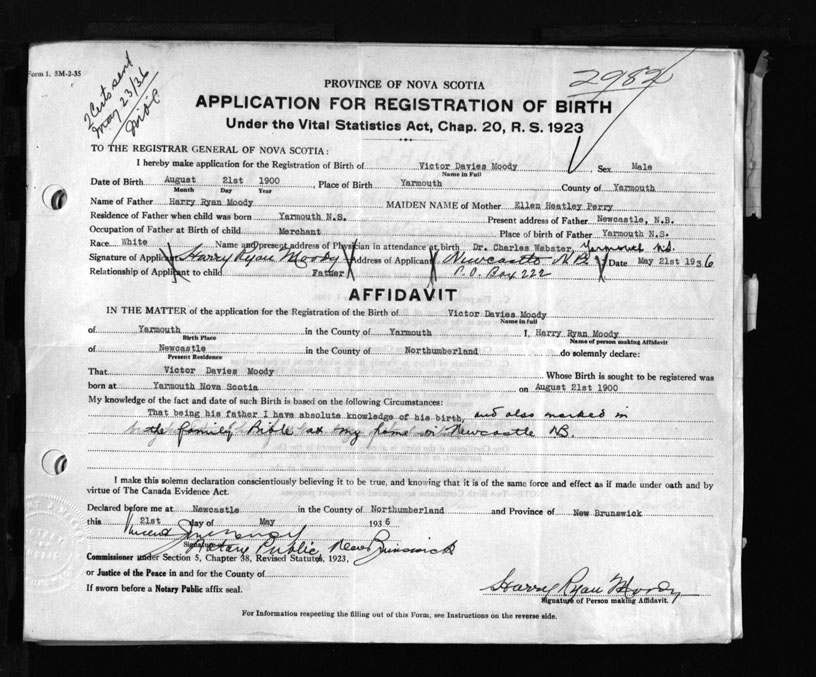 Form 1. 5M-2-35
2 Certs sent
May 23/36
2982
PROVINCE OF NOVA SCOTIA
APPLICATION FOR REGISTRATION OF BIRTH
Under the Vital Statistics Act, Chap. 20, R. S. 1923
TO THE REGISTRAR GENERAL OF NOVA SCOTIA:
I hereby make application for the Registration of Birth of Victor Davies Moody Sex Male
Name in Full
Date of Birth August 21st 1900, Place of Birth Yarmouth County of Yarmouth
Month Day Year
Name of Father Harry Ryan Moody MAIDEN NAME of Mother Ellen Heatley Perry
Residence of Father when child was born Yarmouth N.S. Present address of Father Newcastle, N.B.
Occupation of Father at Birth of child Merchant Place of birth of Father Yarmouth N.S.
Race White Name and present address of Physician in attendance at birth Dr. Charles Webster, Yarmouth NS.
Signature of Applicant Harry Ryan Moody Address of Applicant Newcastle N.B. Date May 21st 1936
Relationship of Applicant to child Father P.O. Box 222
AFFIDAVIT
IN THE MATTER of the application for the Registration of the Birth of Victor Davies Moody
Name in full
of Yarmouth in the County of Yarmouth I, Harry Ryan Moody
Birth Place Name of person making Affidavit
of Newcastle in the County of Northumberland do solemnly declare:
Present Residence
That Victor Davies Moody Whose Birth is sought to be registered was
born at Yarmouth Nova Scotia on August 21st 1900
My knowledge of the fact and date of such Birth is based on the following Circumstances:
That being his father I have absolute knowledge of his birth, and also marked in
the family Bible at my home in Newcastle NB.
I make this solemn declaration conscientiously believing it to be true, and knowing that it is of the same force and effect as if made under oath and by
virtue of The Canada Evidence Act.
Declared before me at Newcastle in the County of Northumberland and Province of New Brunswick
this 21st day of May 1936
Signature
Notary Public New Brunswick
Commissioner under Section 5, Chapter 38, Revised Statutes, 1923,
or Justice of the Peace in and for the County of
If sworn before a Notary Public affix seal.
Harry Ryan Moody
Signature of Person making Affidavit.
For Information respecting the filling out of this Form, see Instructions on the reverse side.